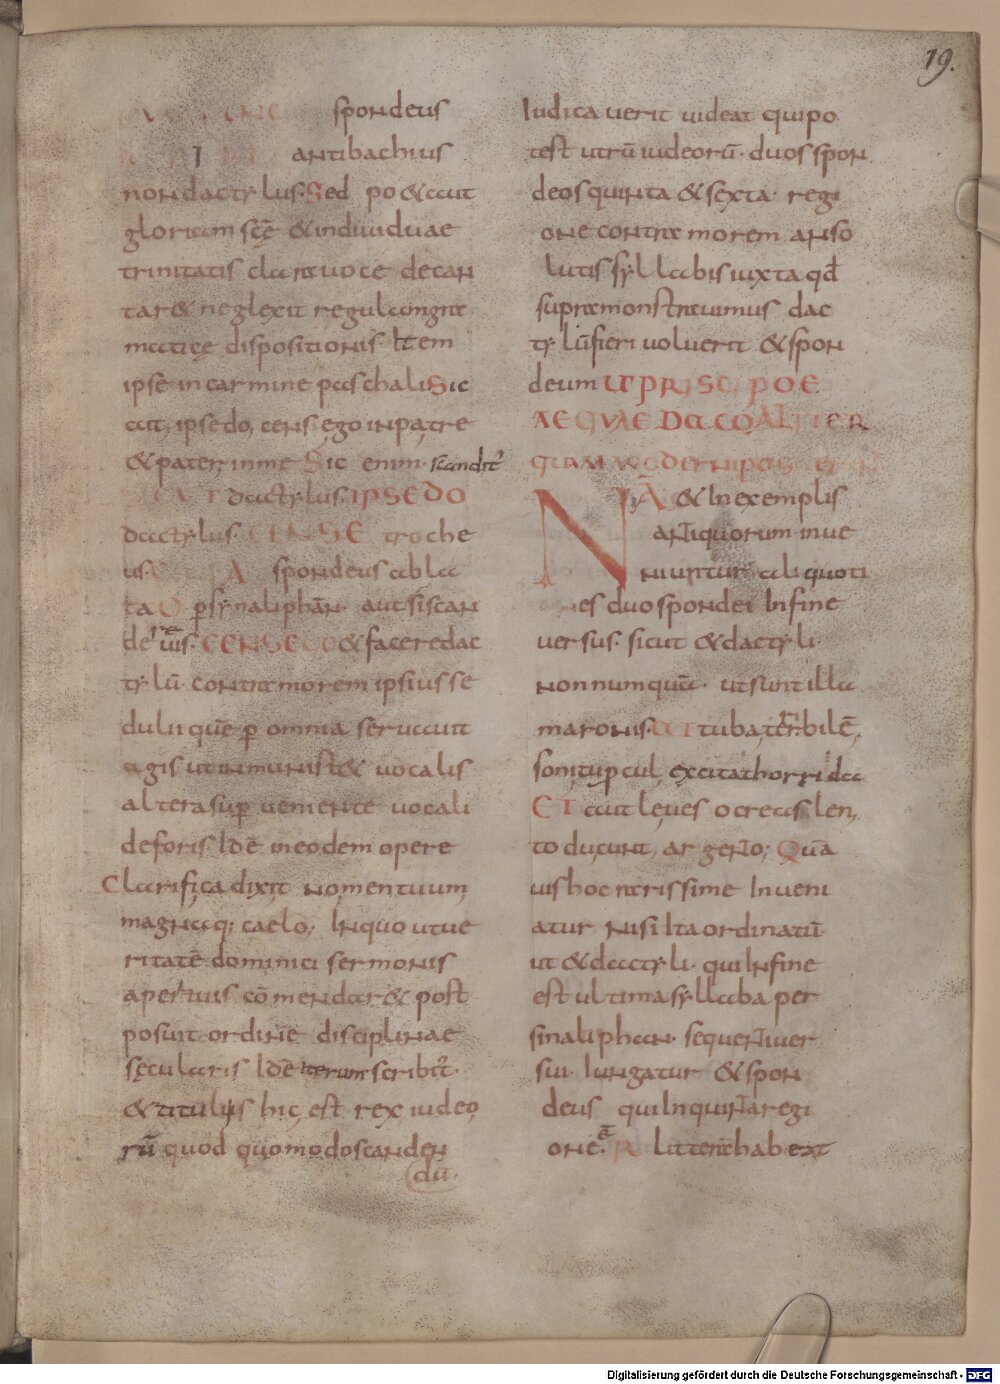 19.
spondeus
antibachius
non dactylus. Sed poeta ut
gloriam scę & individuae
trinitatis clara voce decan
tar& neglexit regulam gra
maticę dispositionis Item
ipse in carmine paschali Sic
ait, ipse docens ego in patre
& pater in me Sic enim scandit̃
dactylus. IPSE DO
dactylus. CENSE troche
us. spondeus abla
ta O p synaliphān aut si scan
de re uis. CENSE & facere dac
tylū contra morem ipsius se
dulii quē p omnia servavit
agis ut inmunist& vocalis
altera sup veniente vocali
deforis Idē in eodem opere
Clarifica dixit nomen tuum,
magnaq; caelo. In quo ut ve
ritatē dominici sermonis
apertius cōmendar& post
posuit ordinē disciplinae
sęcularis Idē iterum scribit̃
& titulus hic est rex iudeo
rū quod quomodo scanden
dū.
Iudicaverit videat qui po
test utrū iudeorū duos spon
deos quinta & sexta regi
one contra morem an so
lutis syllabis iuxta qđ
supra monstravimus dac
tylū fieri voluerit & spon
deum UT PRISCI POE
AEQUAE DACOALITER
QUAM MODERNI POS
NĀ & In exemplis
antiquorum inve
niuntur aliquoti
es duo spondei In fine
versus sicut & dactyli
non numquā ut sunt illa
maronis. AT tuba terribilē,
sonitū p cul, excitat horrida
ET aut leves ocreas len,
to ducunt, argento; Quā
vis hoc rarissime Inveni
atur nisi Ita ordinatū
ut & dactyli qui In fine
est ultima syllaba per
sinaliphan sequenti ver
sui Iungatur & spon
deus qui In quinta regi
one ē R litteram hab ext
Digitalisierung gefördert durch die Deutsche Forschungsgemeinschaft - DFG